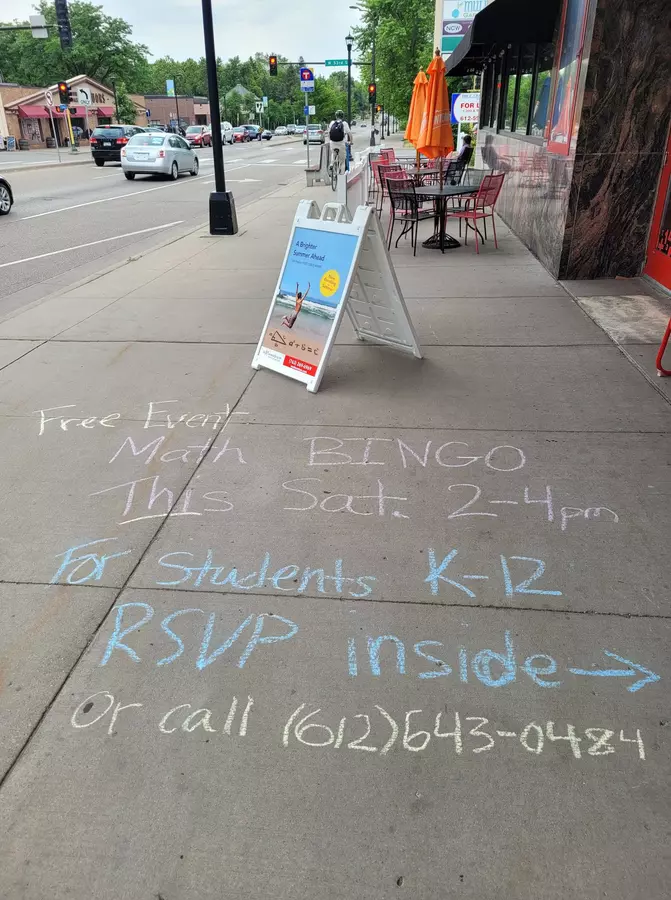 W 53rd St
NCW
FOR L
A Brighter
Summer Ahead
Free Event
Math BINGO
This Sat. 2-4pm
For Students K-12
RSVP inside→
Or call (612)643-0484